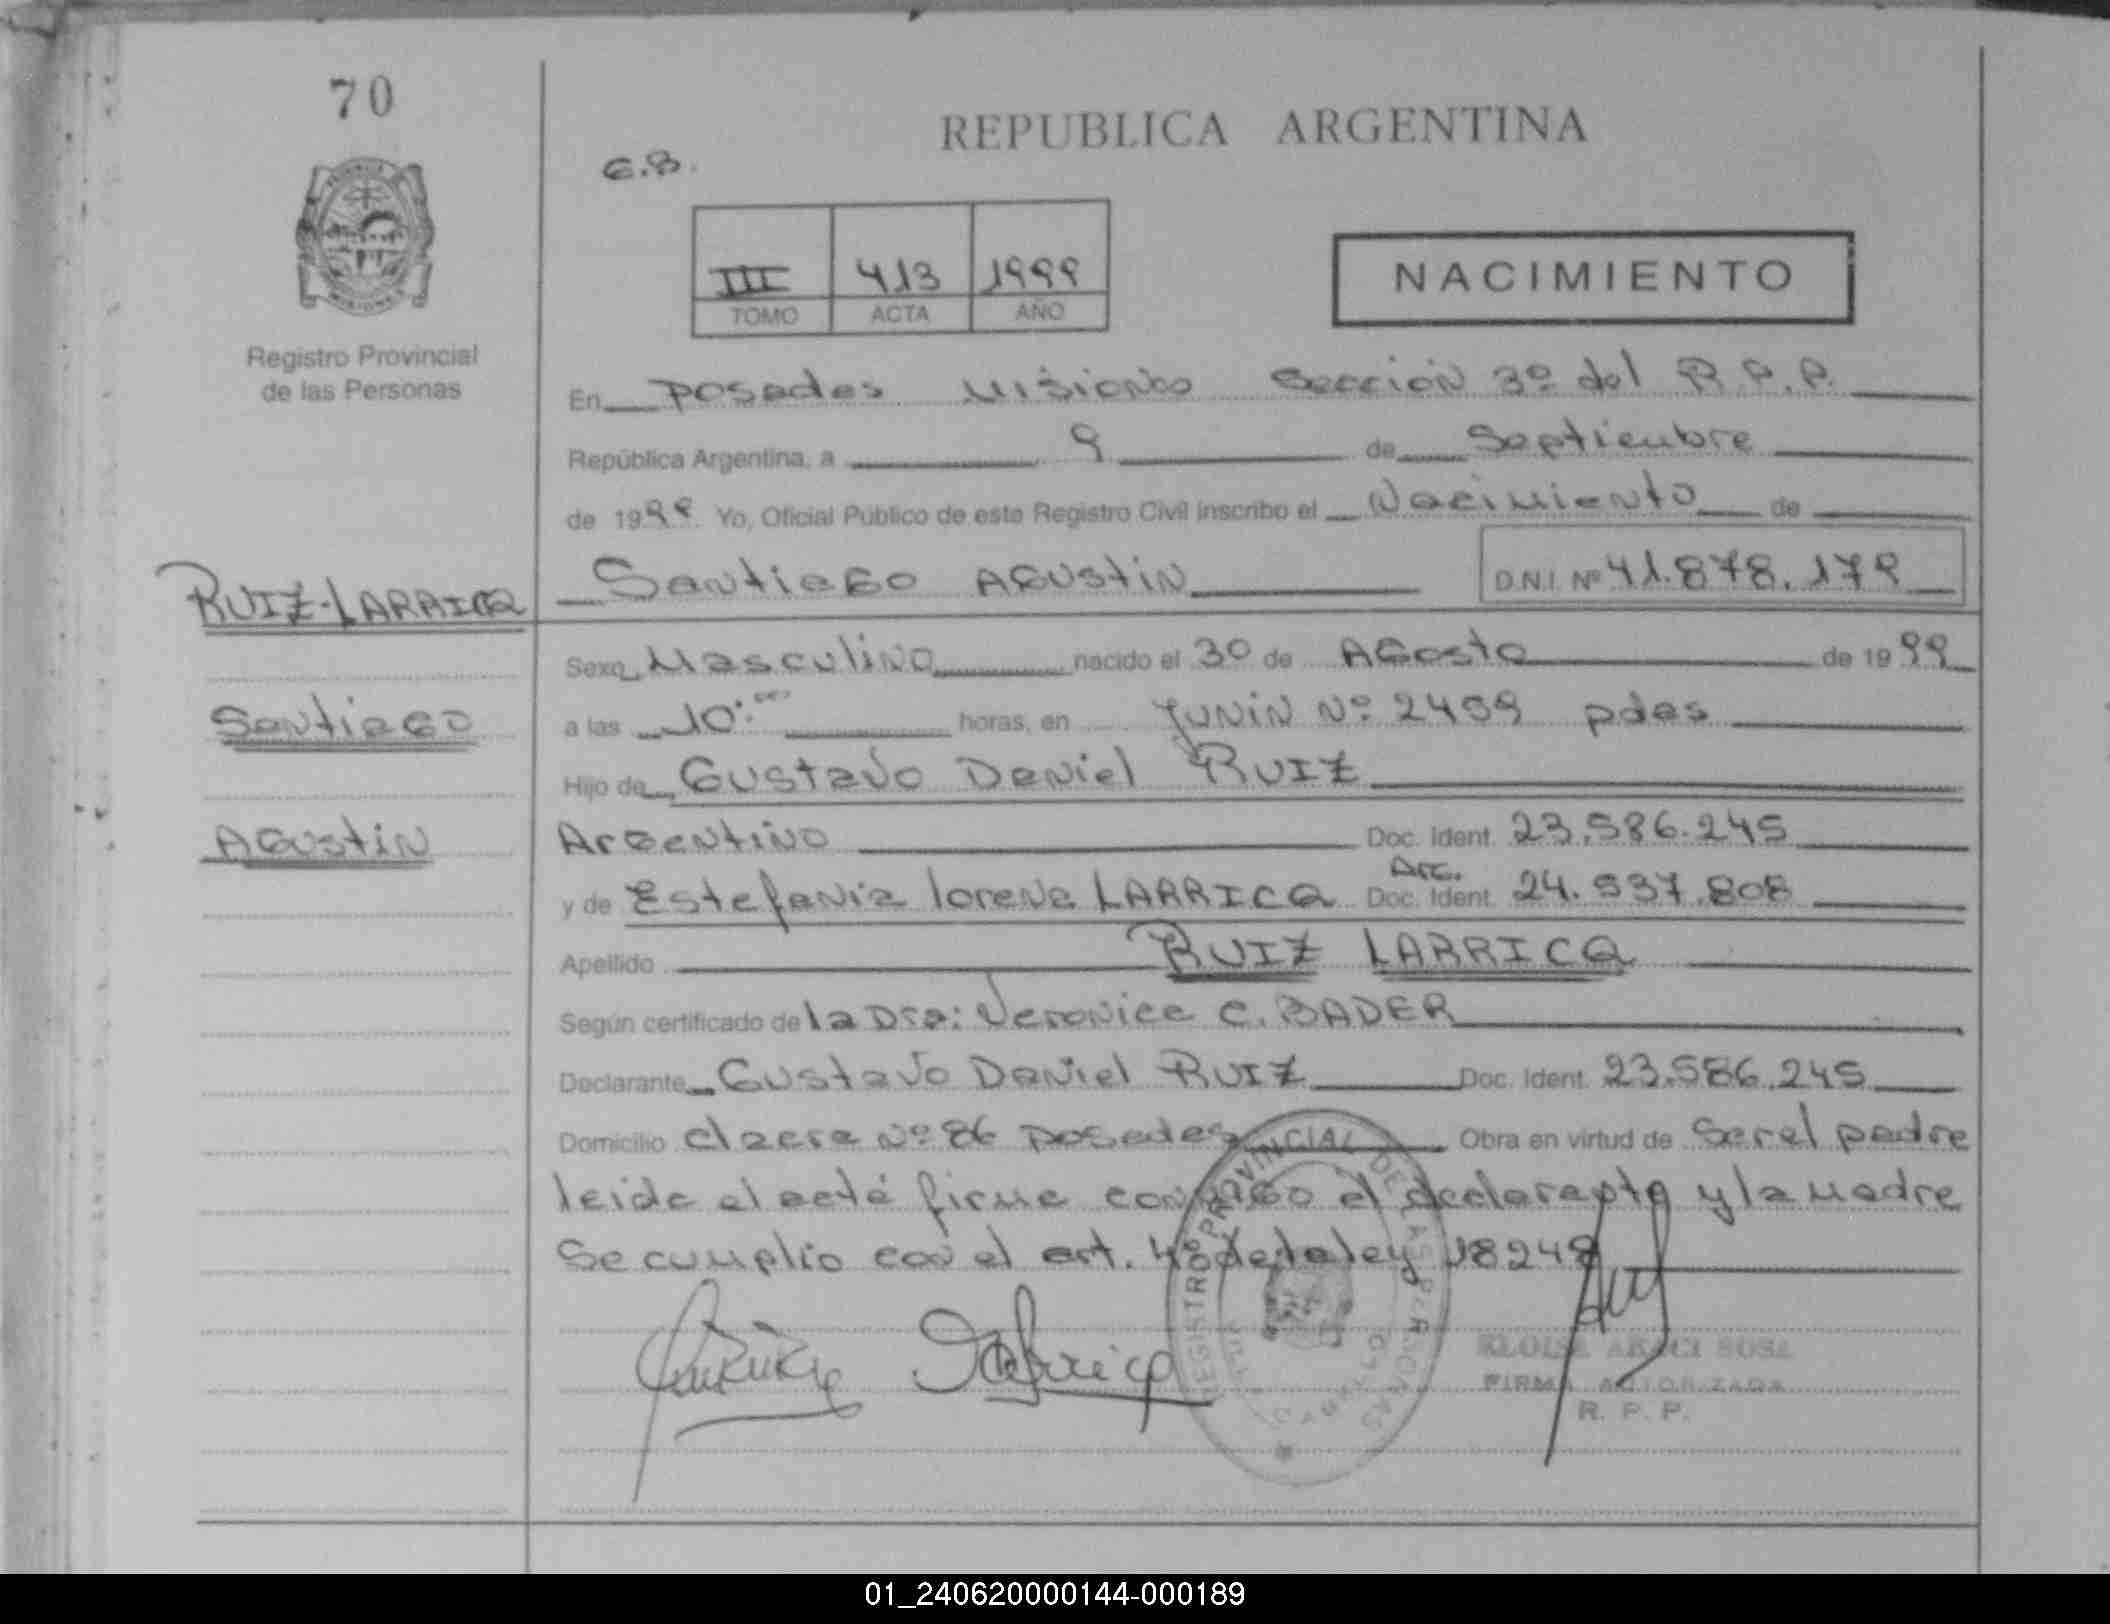 70
REPUBLICA ARGENTINA
G.B.
III 413 1999
TOMO ACTA AÑO
NACIMIENTO
Registro Provincial
de las Personas
En Posadas Misiones Sección 3º del R.P.P.
República Argentina, a 9 de Septiembre
de 1999 Yo, Oficial Público de este Registro Civil inscribo el Nacimiento de
RUIZ-LARRICQ Santiago Agustin D.N.I. Nº 41.878.179
Sexo Masculino nacido el 30 de Agosto de 1999
Santiago
a las 10:00 horas, en Junin Nº 2459 pdas
Hijo de Gustavo Daniel RUIZ
Agustin
Argentino Doc. Ident. 23.586.245
Arg.
y de Estefania lorena LARRICQ Doc. Ident. 24.537.808
Apellido RUIZ LARRICQ
Según certificado de la Dra: Veronica C. BADER
Declarante Gustavo Daniel RUIZ Doc. Ident. 23.586.245
Domicilio Azara Nº 86 posadas Obra en virtud de Ser el padre
leida el acta firma conmigo el declarante y la madre
Se cumplio con el art. 4º de la ley 18248
REGISTRO PROVINCIAL DE LAS PERSONAS
ELOISA ARACI SOSA
FIRMA AUTORIZADA
R. P. P.
01_240620000144-000189